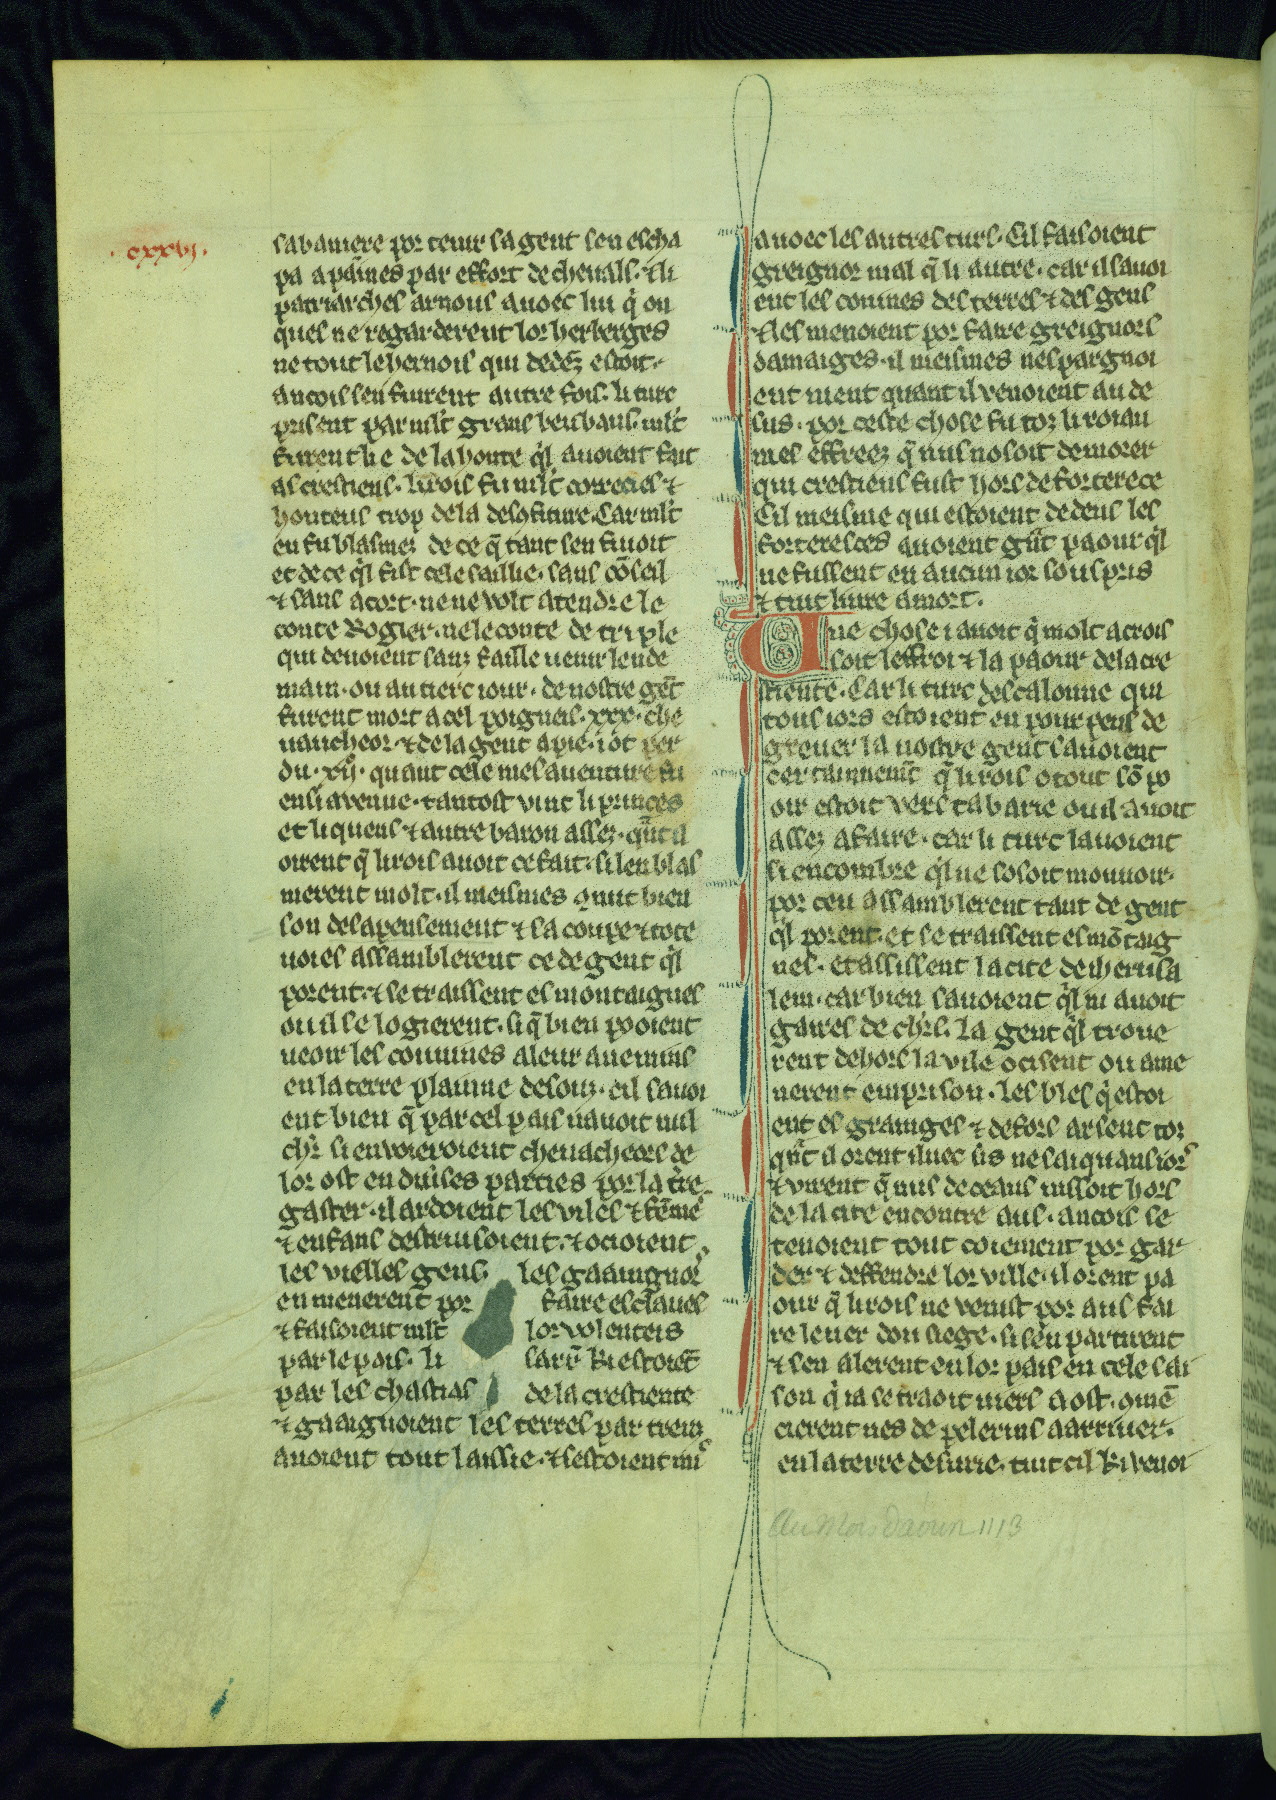 .cxxvj.
sabaniere por tenir sagent sen escha
pa apaĩnes par effort de cheuals. ⁊ li
patriarches arnous auoec lui q̇ on
ques ne regarderent lor herberges
ne tout lehernois qui dedẽz estoit.
ancois sen fuirent autre fois. li turc
prisent par mlt̃ grans beubans. mlt̃
furent lie de lahonte q̇l auoient fait
as crestiens. lirois fu mlt̃ correcies ⁊
honteus trop dela desconfiture. Car mlt̃
en fu blasmez de ce q̃ tant sen fuioit
et de ce q̇l fist cele saillie. sans cõseil
⁊ sans acort. ne ne volt atendre le
conte Rogier. ne le conte de triple
qui deuoient sanz faille uenir lende
main. ou au tierc iour. de nostre gẽt
furent mort a cel poigneis. xxx. che
uaucheor. ⁊ de la gent a pie. i ot per
du. xijͨ. quant cele mesauenture fu
ensi avenue. tantost vint li princes
et li quens ⁊ autre baron assez. qũt il
oirent q̃ lirois auoit ce fait. si len blas
merent molt. il meismes ꝯnut bien
son desapensement ⁊ sa coupe ⁊ tote
uoies assamblerent ce de gent q̇l
porent. ⁊ se traissent es montaignes
ou il se logierent. si q̃ bien pooient
ueoir les couines aleur anemins
en laterre plainne desouz. cil sauoi
ent bien q̃ par cel pais nauoit nul
chr̃. si enuoieroient cheuacheors de
lor ost en diuises parties por la t̃re
gaster. il ardoient les viles ⁊ fẽmeˢ
⁊ enfans destruisoient. ⁊ ocioient
les vielles gens. les gaaingnorˢ
en menerent por faire esclaues
⁊ faisoient mlt̃ lor volenteis
par le pais. li sarr̃ ki estoiẽt
par les chastias de la crestiente
⁊ gaaignoient les terres par treuz
auoient tout laissie. ⁊ sestoient miˢ
auoec les autres turs. Cil faisoient
greignor mal q̃ li autre. car il sauoi
ent les couines des terres ⁊ des gens
⁊ les menoient por faire greignors
damaiges. il meismes nespargnoi
ent nient quant il venoient au de
sus. por ceste chose fu toz li roiau
mes effreez q̃ nus nosoit demorer
qui crestiens fust hors de forterece
Cil meisme qui estoient dedens les
forteresces auoient gñt paour q̇l
ne fussent en aucun ior souspris
⁊ tuit liure a mort.
Une chose i auoit q̃ molt acrois
soit leffroi ⁊ la paour de la cre
stiente. Car li turc descalonne qui
tous iors estoient en pourpens de
greuer la nostre gent sauoient
certainnemẽt q̃ li rois otout sõ po
oir estoit vers tabarie ou il auoit
assez afaire. car li turc lauoient
si encombre q̇l ne sosoit mouuoir.
por ceu assamblerent tant de gent
q̇l porent. et se traissent es mõtaig
nes. et assissent la cite de iherusa
lem. car bien sauoient q̇l ni auoit
gaires de chr̃s. La gent q̇l troue
rent dehors la vile ocisent ou ame
nerent emprison. les bles q̇ estoi
ent es grainges ⁊ defors arsent toz
qũt il orent iluec sis ne sai quans iorˢ
⁊ virent q̃ nus de ceaus nissoit hors
de la cite encontre aus. ancois se
tenoient tout coiement por gar
der ⁊ deffendre lor ville. il orent pa
our q̃ li rois ne venist por aus fai
re leuer dou siege. si sen partirent
⁊ sen alerent en lor pais en cele sai
son q̇ ia se traoit uiers aost. ꝯmẽ
cierent nes de pelerins a arriuer.
en la terre desurie. tuit cil ki venoi
Au Mois daoun 1113